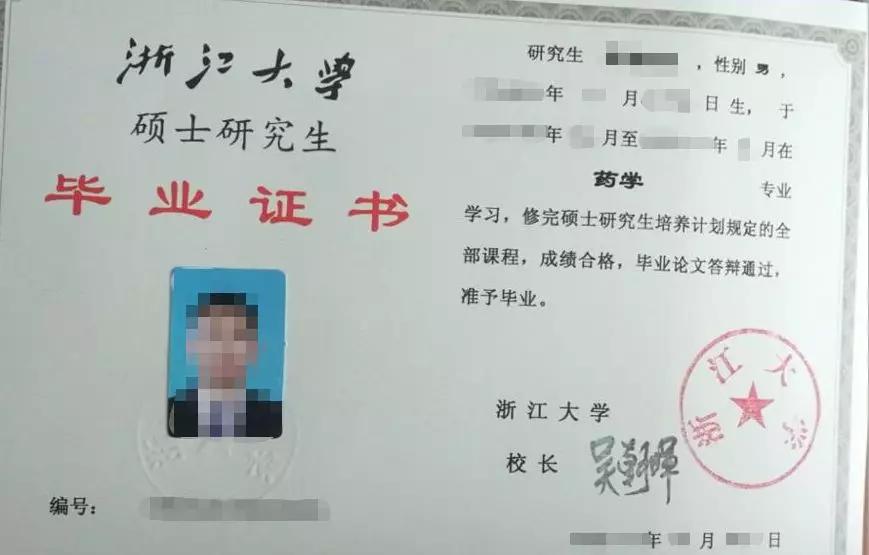 浙江大学
硕士研究生
毕业证书
编号：
研究生 ，性别 男，
年 月 日 生，于
年 月至 年 月在
药学 专业
学习，修完硕士研究生培养计划规定的全
部课程，成绩合格，毕业论文答辩通过，
准予毕业。
浙江大学
校长 吴朝晖
年 月 日
浙江大学
浙江大学